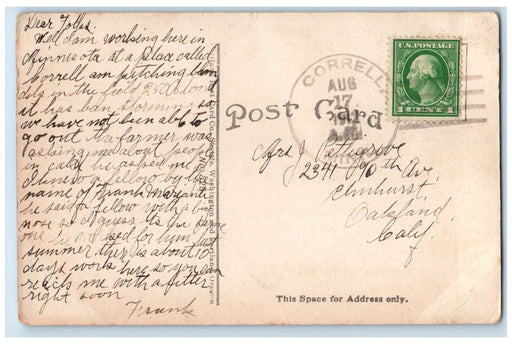 Dear Folks.
Well I am working here in
Minnesota at a place called
Correll am pitching bun
dels in the field
it has ban storming so
we have not bun able to
go out the farmer was
asking me about people
in Calif he asked me
I knew a fellow by the
name of Frank
he said a fellow with a big
nose so I guess its the same
one he used for him last
summer ther is about 10
days work here so you can
reach me with a letter
right soon
Frank
CORRELL
AUG
17
U.S. POSTAGE
1 CENT 1
Post Card
Mrs J. Pettegrove
2341 90th Ave,
Elmhurst,
Oakland,
Calif.
This Space for Address only.